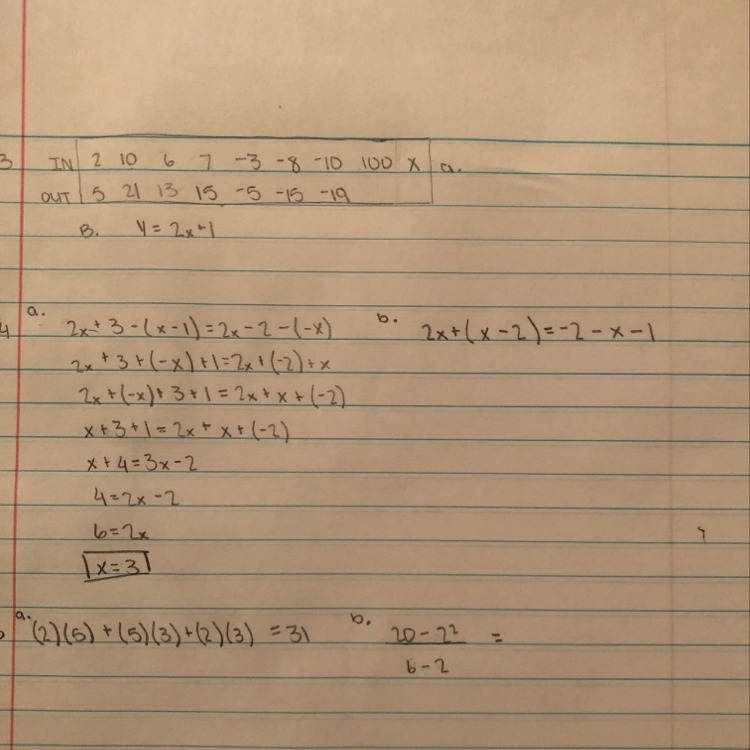 3 IN 2 10 6 7 -3 -8 -10 100 X a.
OUT 5 21 13 15 -5 -15 -19
B. Y = 2x+1
4 a. 2x + 3 - (x - 1) = 2x - 2 - (-x) b. 2x + (x - 2) = -2 - x - 1
2x + 3 + (-x) + 1 = 2x + (-2) + x
2x + (-x) + 3 + 1 = 2x + x + (-2)
x + 3 + 1 = 2x + x + (-2)
x + 4 = 3x - 2
4 = 2x - 2
6 = 2x
x = 3
a. (2)(5) + (5)(3) + (2)(3) = 31 b. 20 - 2² =
6 - 2